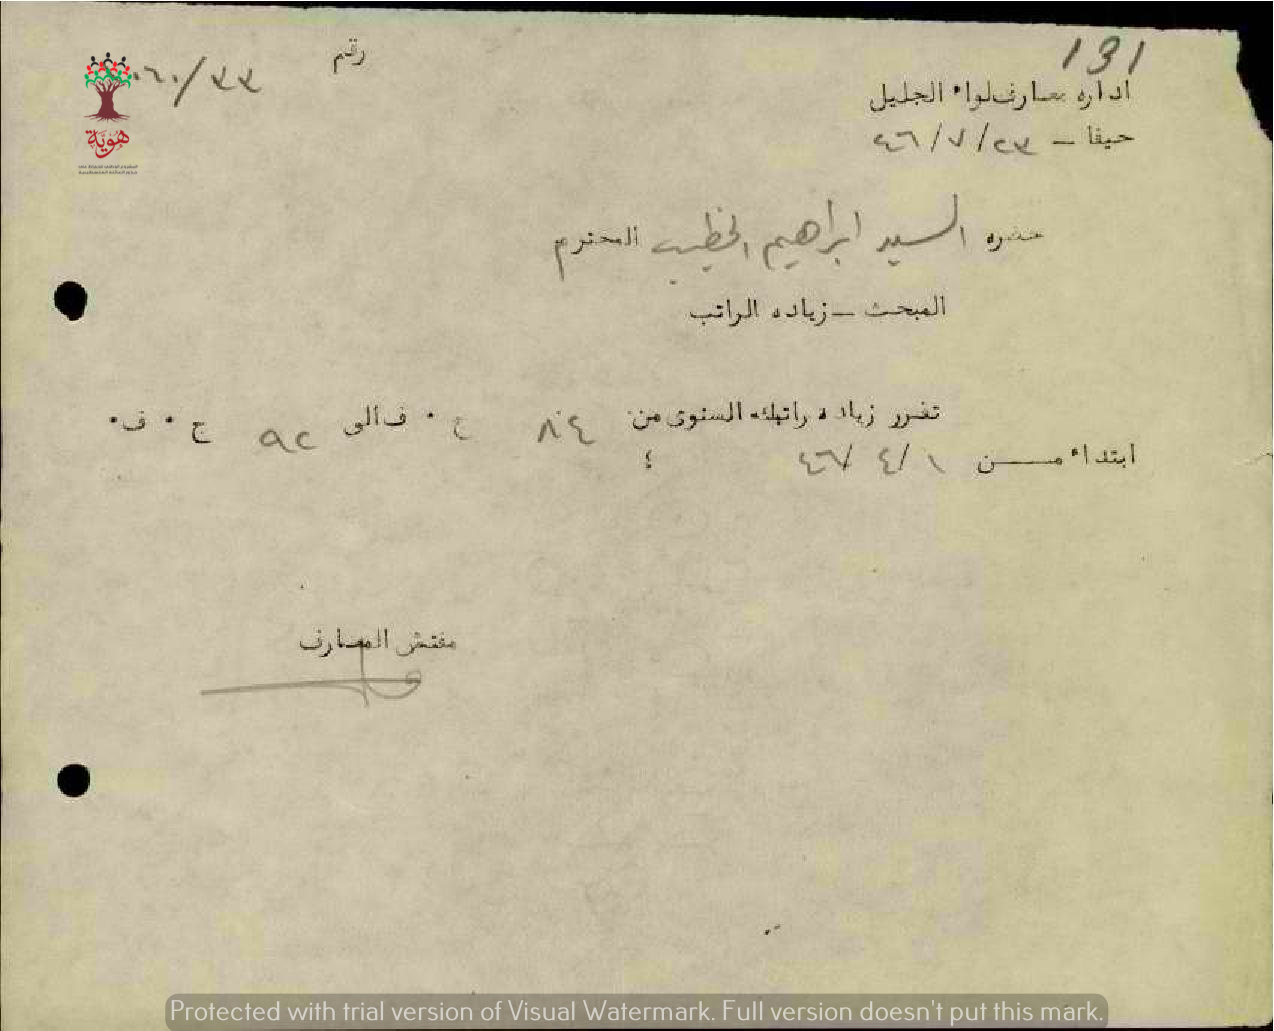 131
رقم ٣٣/٦٠
اداره معارف لواء الجليل
حيفا – ٢٣/٧/٤٦
حضره السيد ابراهيم الخطيب المحترم
المبحث – زياده الراتب
تقرر زياده راتبك السنوى من ٨٤ ج ٠ ف الى ٩٢ ج ٠ ف٠
ابتداء مــن ١/٤/٤٦ ؛
مفتش المعارف
هُويّة
Protected with trial version of Visual Watermark. Full version doesn't put this mark.